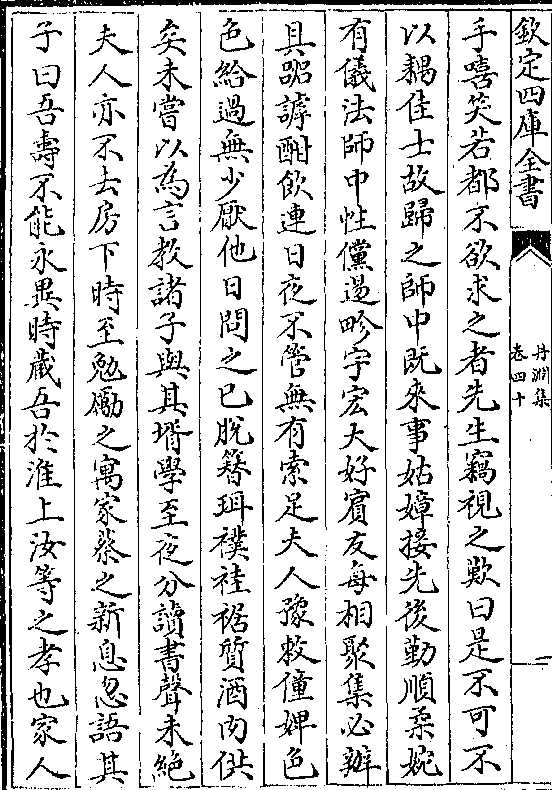 欽定四庫全書
丹淵集
卷四十
手嘻笑若都不欲求之者先生竊視之歎曰是不可不
以耦佳士故歸之師中既來事姑嫜接先後勤順柔婉
有儀法師中性儻邁畛宇宏大好賓友每相聚集必辦
具器謼酣飲連日夜不管無有索足夫人豫敕僮婢色
色給過無少厭他日問之已脫簪珥襆袿裾質酒肉供
矣未嘗以為言教諸子與其壻學至夜分讀書聲未絶
夫人亦不去房下時至勉勵之寓家蔡之新息忽語其
子曰吾壽不能永異時蕆吾於淮上汝等之孝也家人